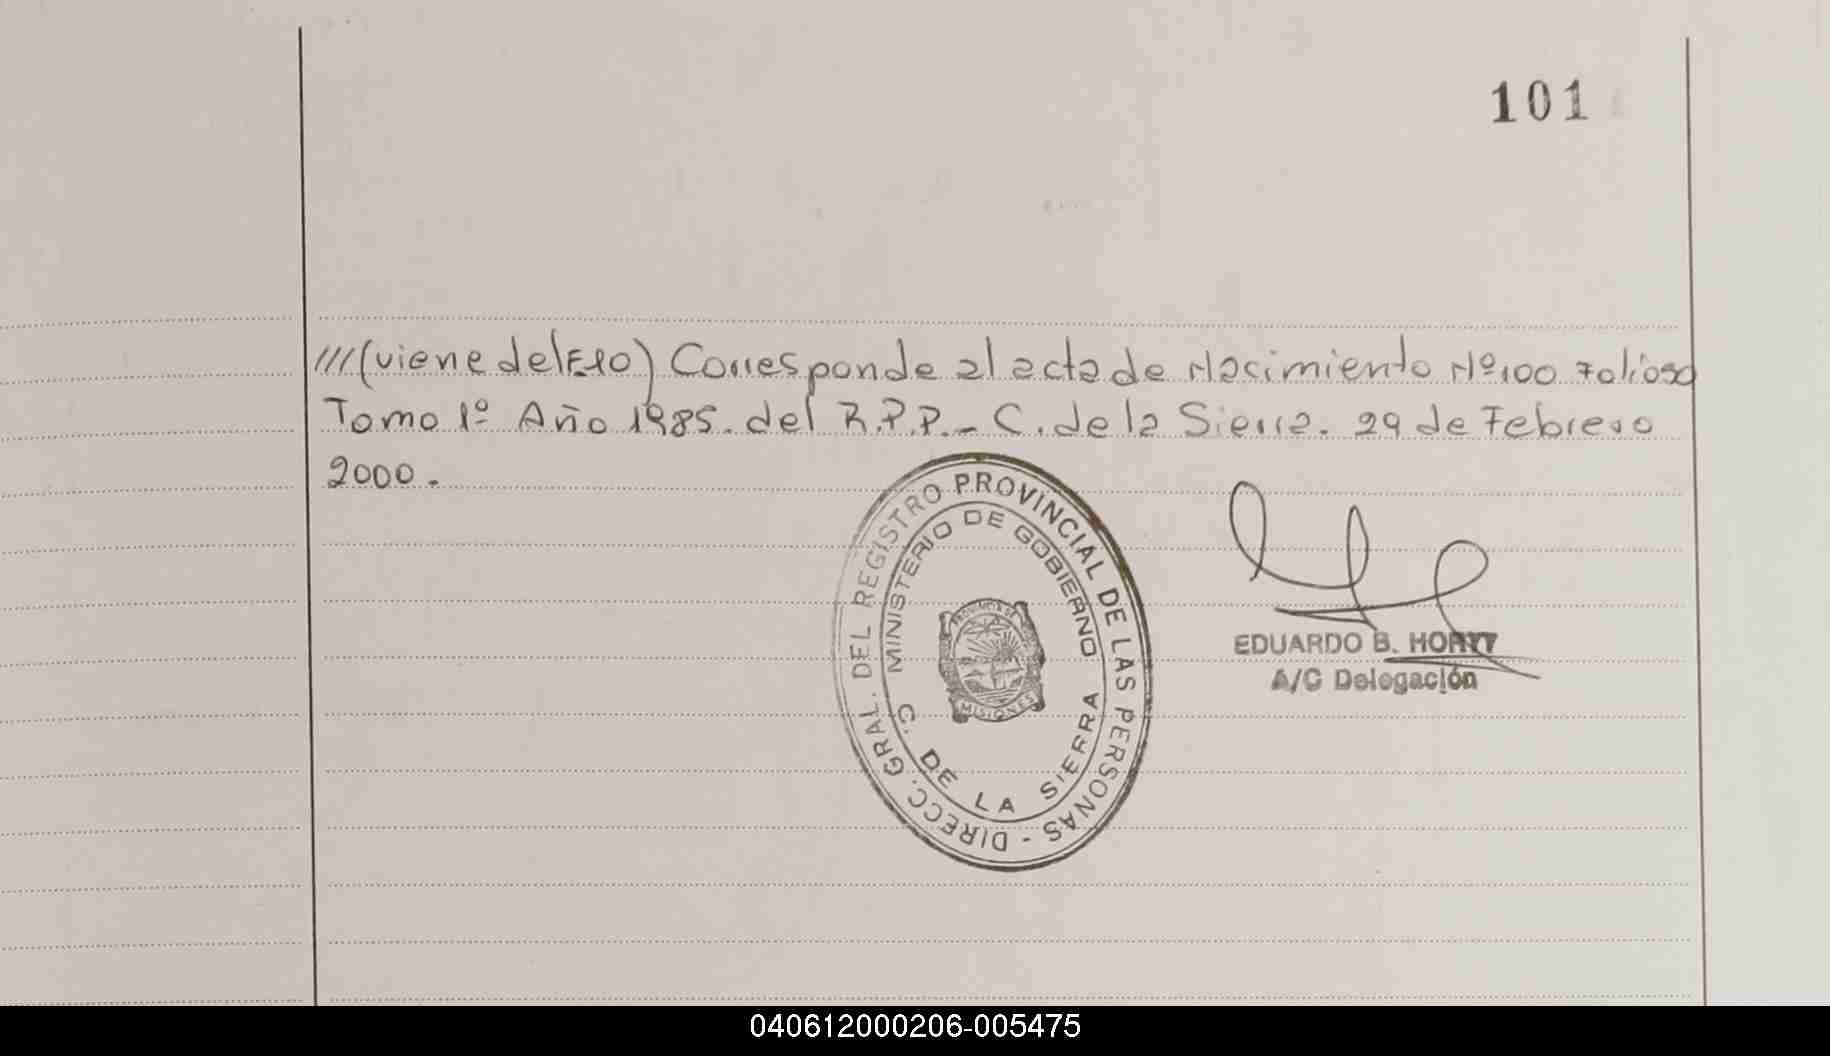 101
///(viene del F10) Corresponde al acta de Nacimiento Nº100 Folio50
Tomo 1º Año 1985. del R.P.P.- C. de la Sierra. 29 de Febrero
2000.
DIRECC. GRAL. DEL REGISTRO PROVINCIAL DE LAS PERSONAS -
MINISTERIO DE GOBIERNO
C. DE LA SIERRA
PROVINCIA DE
MISIONES
EDUARDO B.
A/C Delegación
040612000206-005475